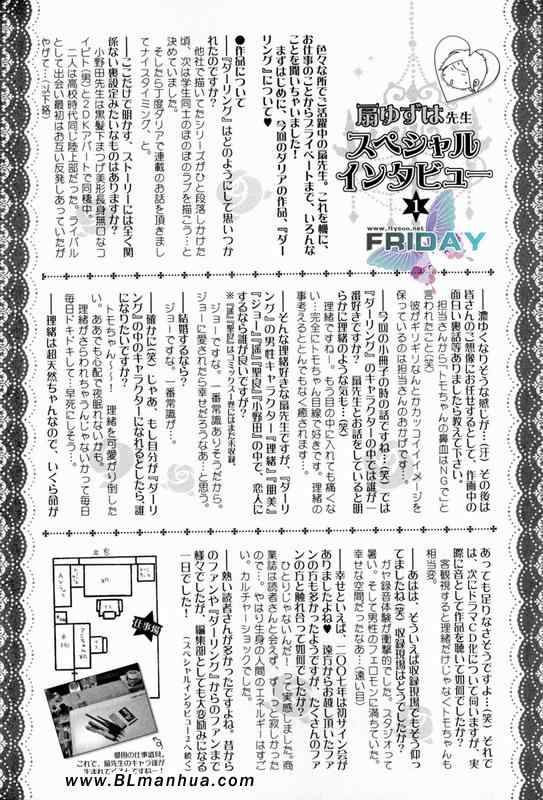 扇ゆずは先生
スペシャル
インタビュー
1
www.flysoo.net
FRIDAY
色々な所でご活躍中の扇先生。これを機に、
お仕事のことからプライベートまで、いろんな
ことを聞いちゃいました!
まずはじめに、今回のダリアの作品、『ダー
リング』について♥
●作品について
──『ダーリング』はどのようにして思いつか
れたのですか?
他社で描いてたシリーズがひと段落しかけた
頃、次は学生同士のほのぼのラブを描こう…と
決めていました。
そしたら丁度ダリアで連載のお話を頂きまし
てナイスタイミング、と。
──ここだけで明かす、ストーリーには全く関
係ない裏設定みたいなものはありますか?
小野田先生は黒髪下まつげ美形長身無口なコ
イビト(男)と2DKアパートで同棲中。
二人は高校時代同じ陸上部だった。ライバル
として出会い最初はお互い反発しあっていたが
やがて…(以下略)
──濃ゆくなりそうな感じが…(汗)その後は
皆さんのご想像にお任せするとして、作画中の
面白い裏話等ありましたら教えて下さい。
担当さんから「トモちゃんの鼻血はNGで」と
言われたこと(笑)
彼がギリギリなんとかカッコイイイメージを
保っているのは担当さんのおかげです…
──今回の小冊子の時の話ですね…(笑)では
『ダーリング』のキャラクターの中では誰が一
番好きですか? 扇先生とお話をしていると明
らかに理緒のような気も…(笑)
理緒ですねー。もう目の中に入れても痛くな
い…完全にトモちゃん目線で好きです。理緒の
事考えるととんでもなく癒されます。
──そんな理緒好きな扇先生ですが、『ダーリ
ング』の男性キャラクター『理緒』『朋美』
『ジョー』『遥』『聖良』『小野田』の中で、恋人に
するなら誰が良いですか?
※『遥』『聖良』はコミックス一巻にはまだ未収録。
ジョーですな。一番常識ありそうだから。
ジョーに愛されたら幸せだろうなあ…と思う。
──結婚するなら?
ジョーですな。一番常識が…
──確かに(笑)じゃあ、もし自分が『ダーリ
ング』の中のキャラクターになれるとしたら、誰
になりたいですか?
トモちゃん〜!!! 理緒を可愛がり倒した
い。ああでも心配で夜眠れないかも。
理緒がさらわれちゃうんじゃないかって毎日
毎日ドキドキして…早死にしそう…
──理緒は超天然ちゃんなので、いくら命が
あっても足りなさそうですよ…(笑)それで
は、次にドラマCD化について伺いますが、実
際に音として作品を聴いて如何でしたか?
客観視すると理緒だけじゃなくトモちゃんも
相当変。
──あはは、そういえば収録現場でもそう仰っ
てましたね(笑)収録現場はどうでしたか?
ガヤ録音体験が衝撃的でした。スタジオって
暑い。そして男性のフェロモンに満ちていた。
幸せな空間だったなあ…(遠い目)
──幸せといえば、二〇〇七年は初サイン会が
ありましたよね♥ 遠方からお越し頂いたファ
ンの方も多かったようですが、たくさんのファ
ンの方と触れ合って如何でしたか?
ひとりじゃないんだ!って実感しました。商
業誌は読者さんと会えず、ずーっと寂しかった
ので…。やはり生身の人間のエネルギーはすご
い。カルチャーショックでした。
──熱い読者さんが多かったですよね。昔から
のファンや『ダーリング』からのファンまで
様々でしたが、編集部としても大変励みになる
一日でした!
(スペシャルインタビュー2へ続く)
仕事場
愛用の仕事道具。
これで、扇先生のキャラ達が
生まれてくるんですね〜!
www.BLmanhua.com